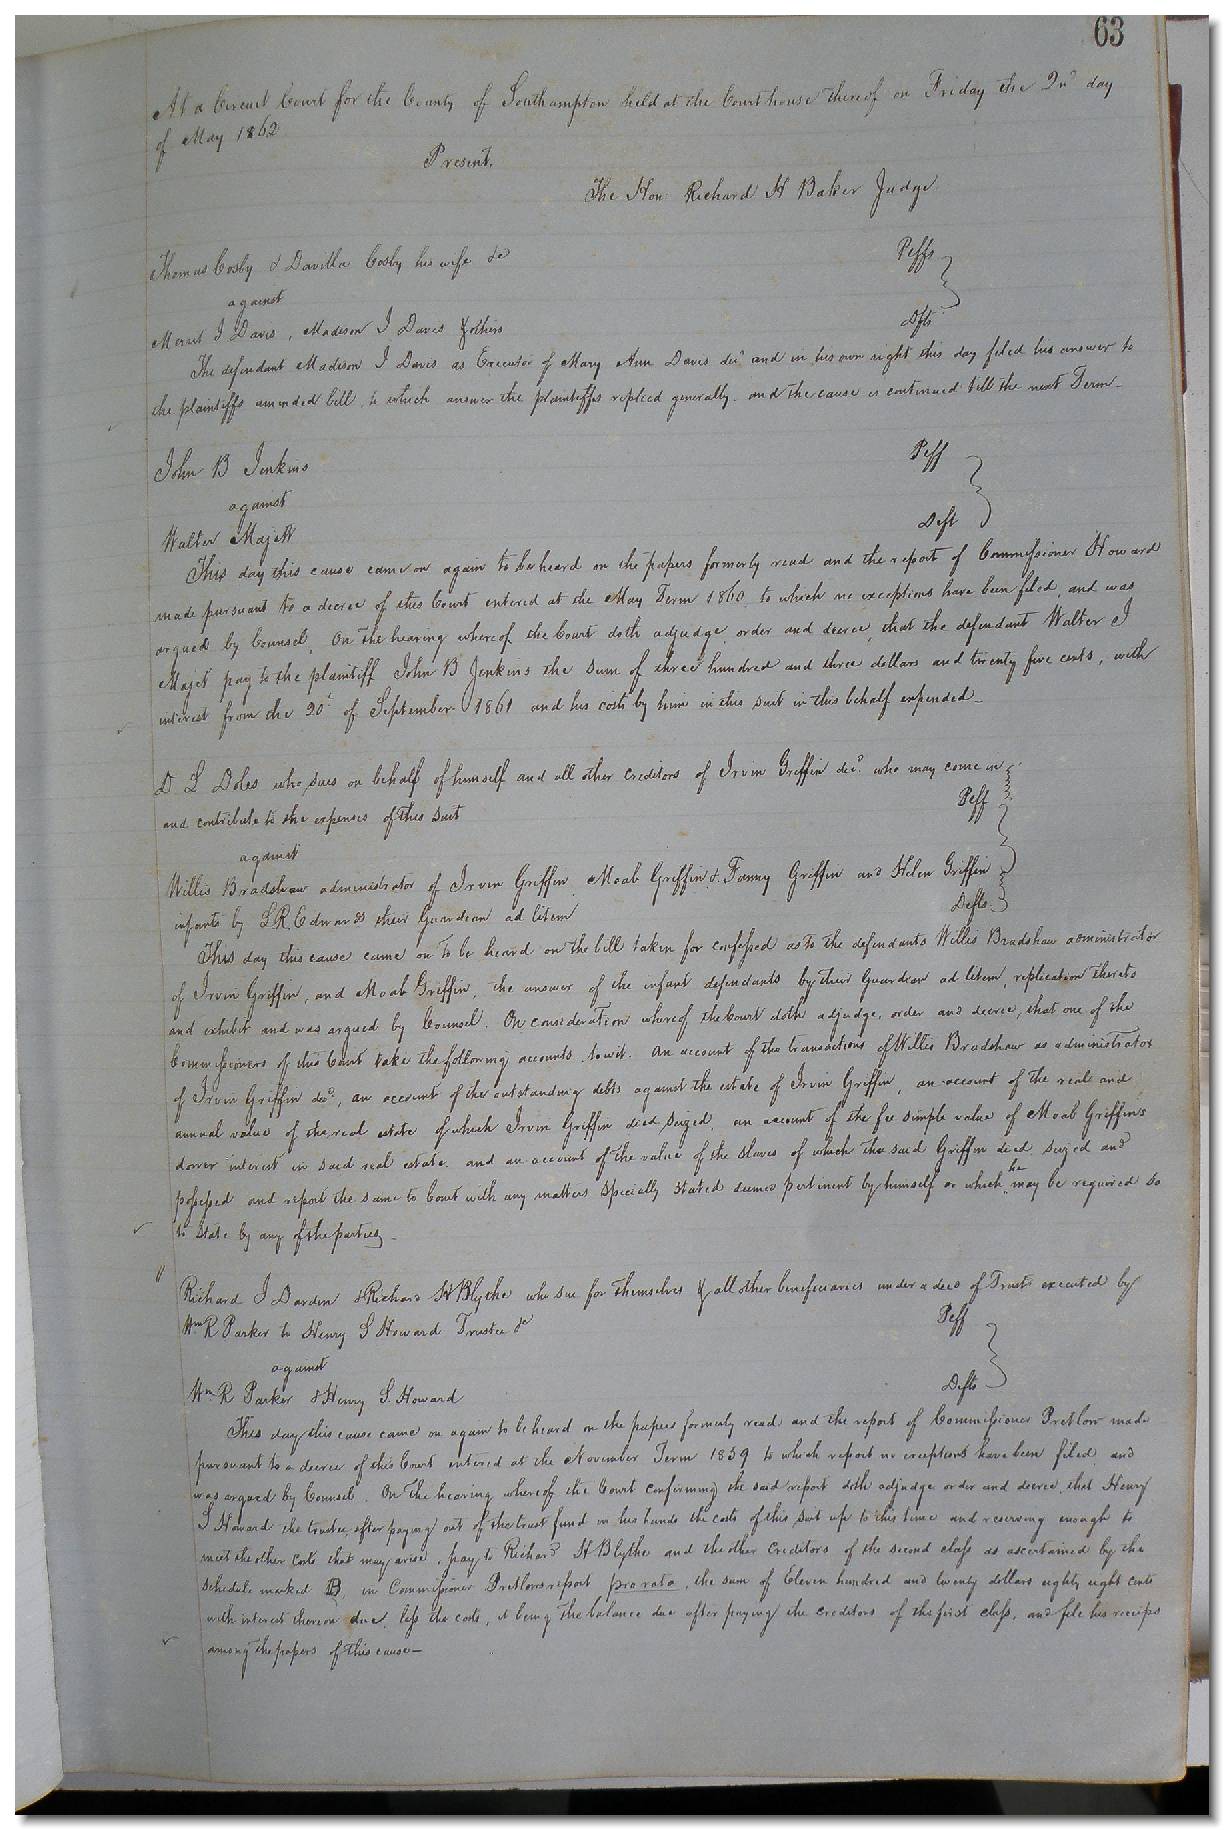 63
At a Circuit Court for the County of Southampton held at the Courthouse thereof on Friday the 2nd day
of May 1862
Present,
The Hon Richard H Baker Judge
Thomas Cosby & Davilla Cosby his wife &c Plffs
against
Merit I Davis, Madison I Daves & others Dfts
The defendant Madison I Davis as Executor of Mary Ann Daves decd and in his own right this day filed his answer to
the plaintiffs amended bill, to which answer the plaintiffs replied generally. and the cause is continued till the next Term—
John B Jenkins Plff
against
Walter Majett Deft
This day this cause came on again to be heard on the papers formerly read and the report of Commissioner Howard
made pursuant to a decree of this Court entered at the May Term 1860, to which no exceptions have been filed, and was
argued by Counsel, On the hearing whereof the Court doth adjudge, order and decree, that the defendant Walter I
Majett pay to the plaintiff John B Jenkins the sum of three hundred and three dollars and twenty five cents, with
interest from the of September 1861 and his costs by him in this suit in this behalf expended—
D L Doles who sues on behalf of himself and all other creditors of Irvin Griffin decd. who may come in
and contribute to the expenses of this suit Plff
against
Willis Bradshaw administrator of Irvin Griffin, Moab Griffin & Fanny Griffin and Helen Griffin
infants by L.R. Edwards their Guardian ad litem Defts.
This day this cause came on to be heard on the bill taken for confessed as to the defendants Willis Bradshaw administrator
of Irvin Griffin, and Moab Griffin, the answer of the infant defendants by their Guardian ad litem, replication thereto
and exhibit and was argued by Counsel. On consideration whereof, the Court doth adjudge, order and decree, that one of the
Commissioners of this Court take the following accounts, towit. An account of the transactions of Willis Bradshaw as administrator
of Irvin Griffin decd., an account of the outstanding debts against the estate of Irvin Griffin, an account of the real and
annual value of the real estate of which Irvin Griffin died seized, an account of the fee simple value of Moab Griffins
dower interest in said real estate. and an account of the value of the slaves of which the said Griffin died, seized and
possessed and report the same to Court with any matters specially stated deemed pertinent by himself or which he may be required so
to state by any of the parties—
Richard I Darden & Richard H Blythe who sue for themselves & all other beneficiaries under a deed of Trust executed by
Wm R Parker to Henry S Howard Trustee &c Plff
against
Wm R Parker & Henry S. Howard Defts
This day this cause came on again to be heard on the papers formerly read and the report of Commissioner Pretlow made
pursuant to a decree of this Court entered at the November Term 1859 to which report no exceptions have been filed, and
was argued by Counsel. On the hearing whereof the Court confirming the said report doth adjudge order and decree, that Henry
S Howard the trustee, after paying out of the trust fund in his hands the costs of this suit up to this time and reserving enough to
meet the other costs that may arise, pay to Richard H Blythe and the other creditors of the second class as ascertained by the
schedule marked B in Commissioner Pretlows report pro rata, the sum of Eleven hundred and twenty dollars eighty eight cents
with interest thereon due, less the costs, it being the balance due after paying the creditors of the first class, and file his receipts
among the papers of this cause—